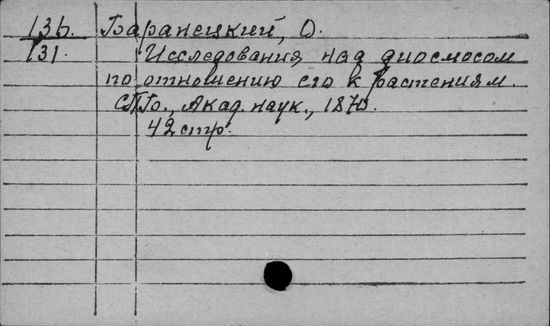 13б. Баранецкий, О.
131. Исследования над диосмосом
по отношению его к растениям.
СПб., Акад. наук., 1870.
42 стр.